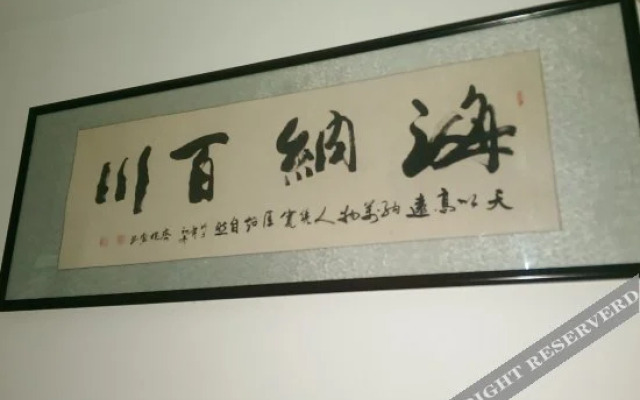 海納百川
天以高遠納萬物人凭寬厚超自然
RIGHT RESERVERD